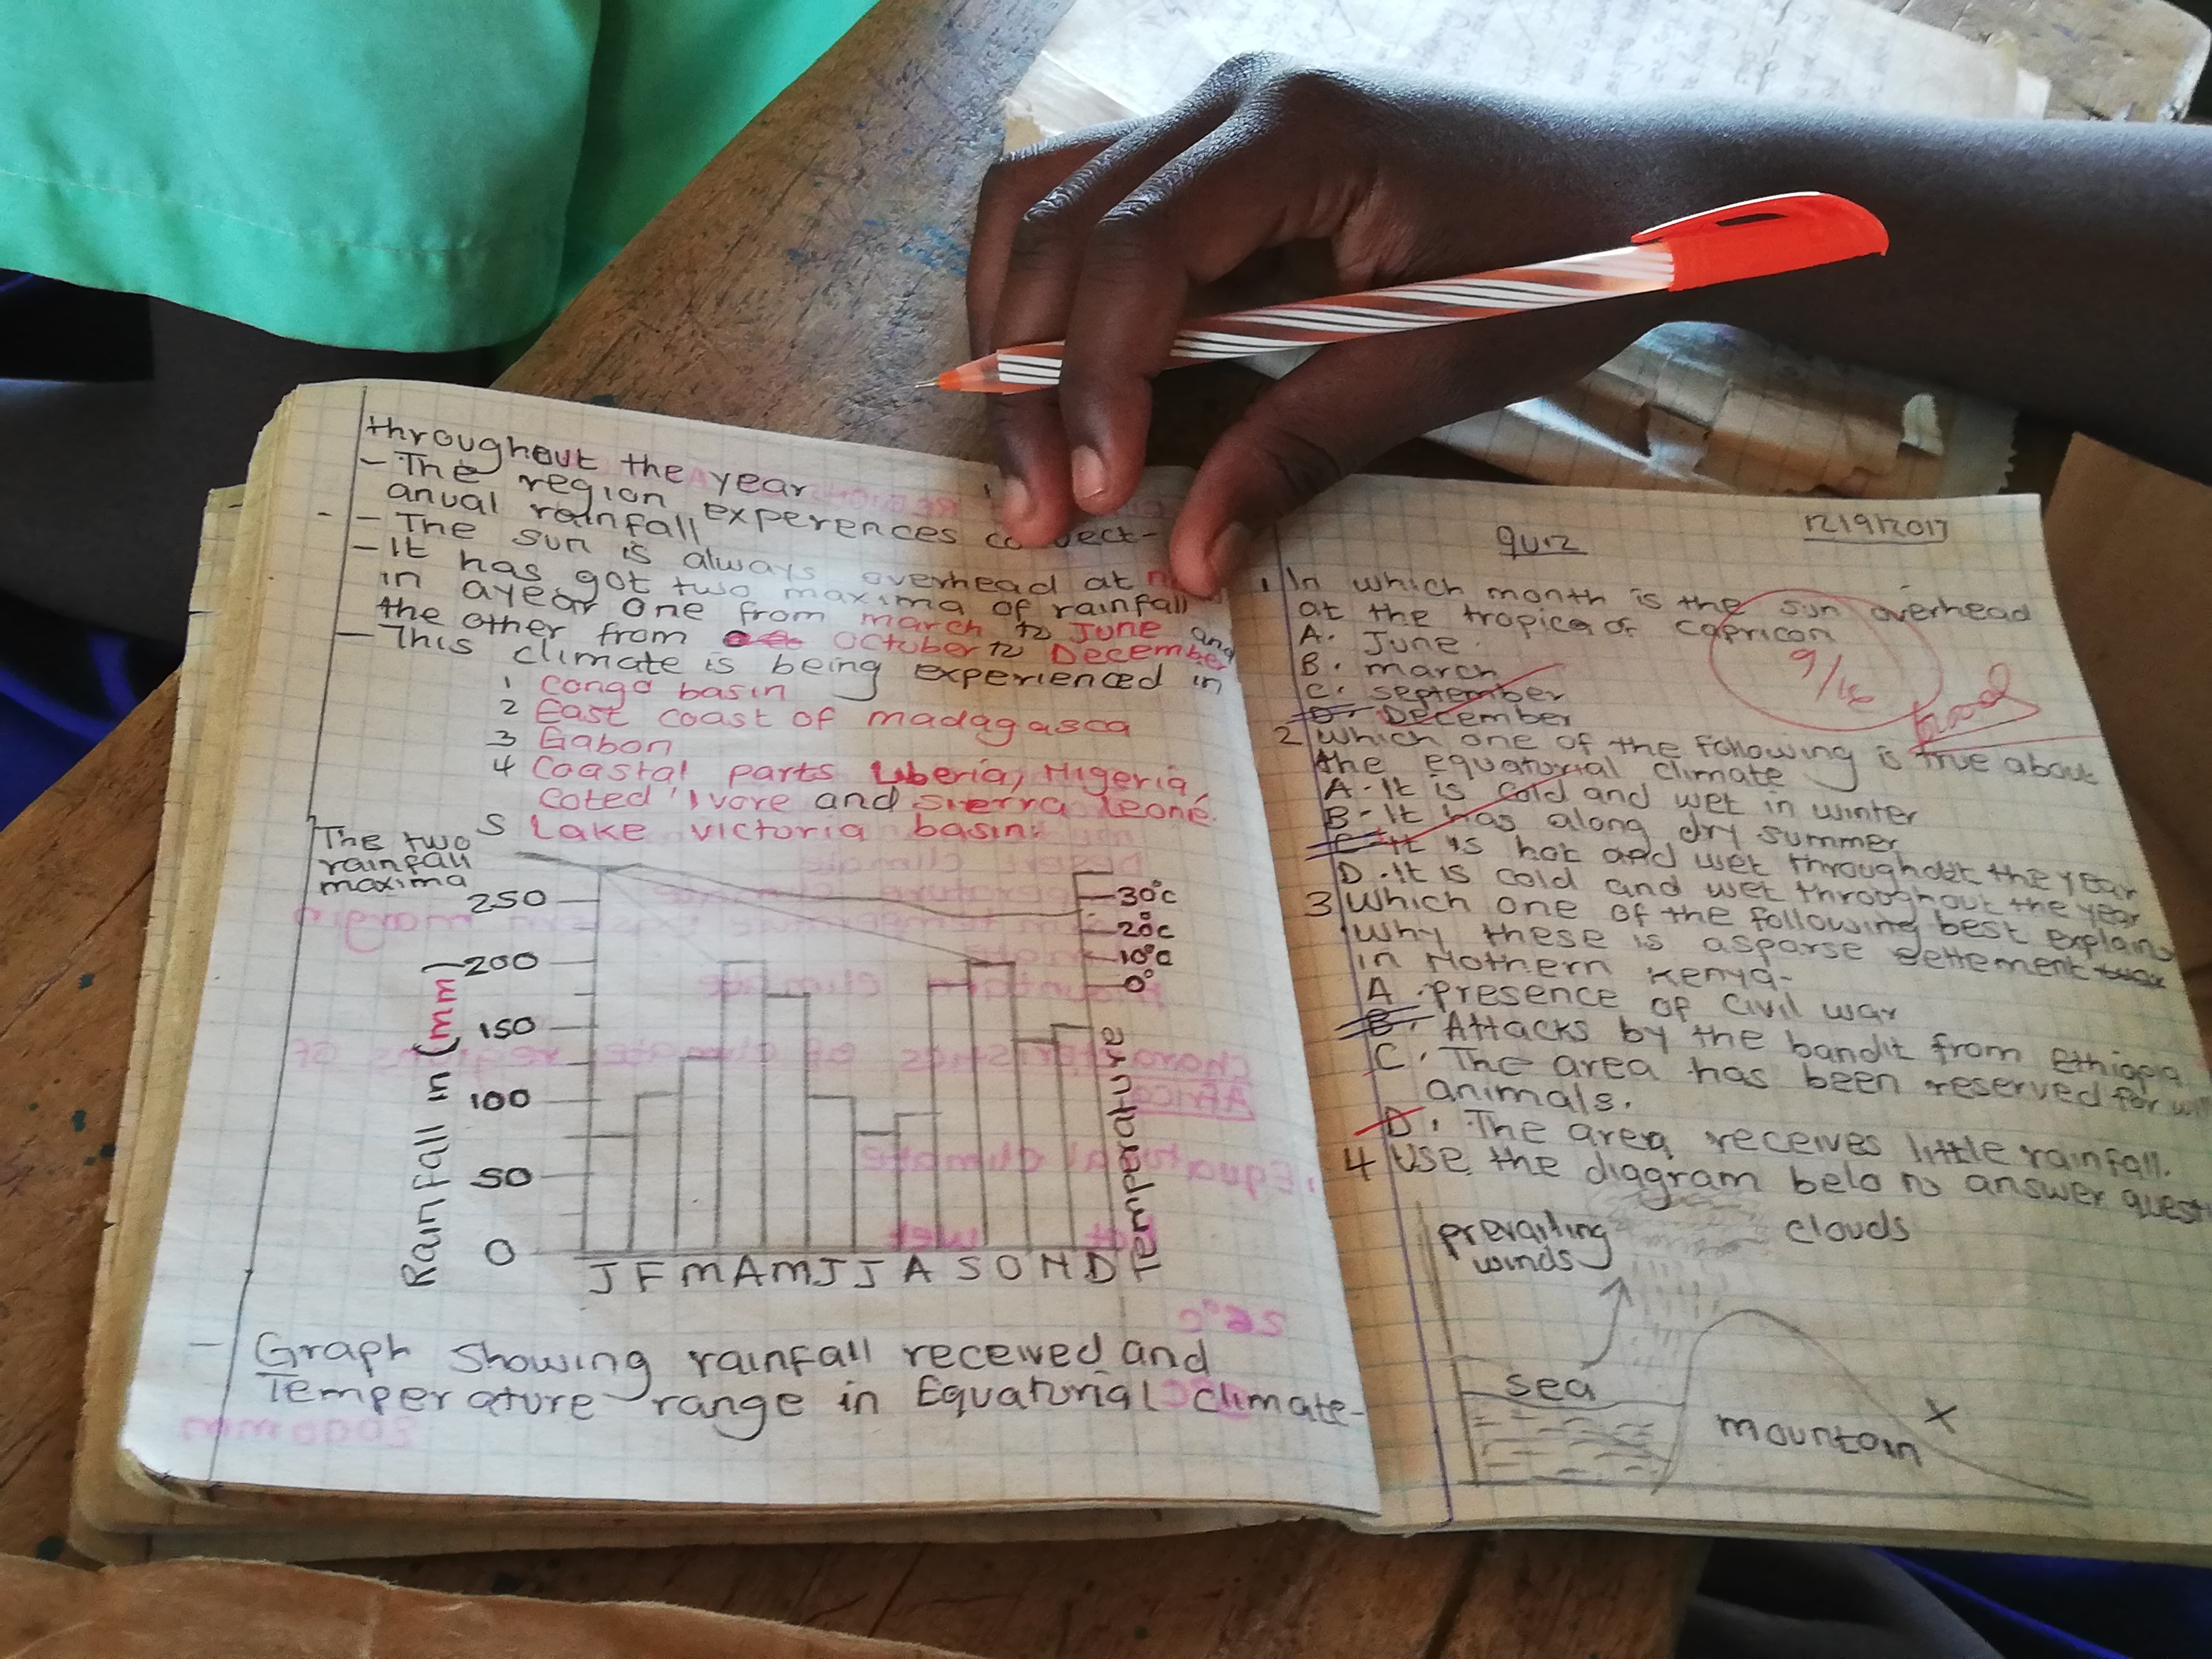 throughout the year
- The region experences co vect-
anual rainfall
- The sun is always overhead at n
- It has got two maxima of rainfall
in ayear one from march to June and
the other from October to December
- This climate is being experienced in
1 Congo basin
2 East coast of madagasca
3 Gabon
4 Coastal parts Liberia, Nigeria,
Coted'Ivore and Sierra leone.
5 Lake victoria basin.
The two
rainfall
maxima
250
200
150
100
50
0
Rainfall in (mm)
30°c
20°c
10°c
0°
Temperature
J F M A M J J A S O N D
- Graph showing rainfall received and
Temperature range in Equatorial climate-
Quiz
12/9/2017
1 In which month is the sun overhead
at the tropics of capricon
A. June.
B. march
C. september
D. December
9/16
Good
2 Which one of the following is true about
the equatorial climate
A. It is cold and wet in winter
B. It has along dry summer
C. It is hot and wet throughout the year
D. It is cold and wet throughout the year
3 Which one of the following best explains
why these is asparse settement
in Nothern Kenya-
A. presence of civil war
B. Attacks by the bandit from Ethiopia
C. The area has been reserved for wil
animals.
D. The area receives little rainfall.
4 Use the diagram belo to answer quest
prevailing
winds
clouds
sea
mountain
X